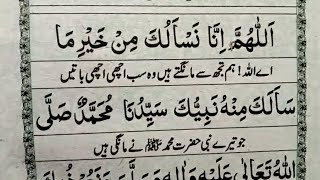 اَللّٰهُمَّ اِنَّا نَسْأَلُكَ مِنْ خَيْرِ مَا
اے اللہ! ہم تجھ سے مانگتے ہیں وہ سب اچھی اچھی باتیں
سَأَلَكَ مِنْهُ نَبِيُّكَ سَيِّدُنَا مُحَمَّدٌ صَلَّى
جو تیرے نبی حضرت محمد ﷺ نے مانگی ہیں
اللّٰهُ تَعَالٰى عَلَيْهِ وَاٰلِهٖ